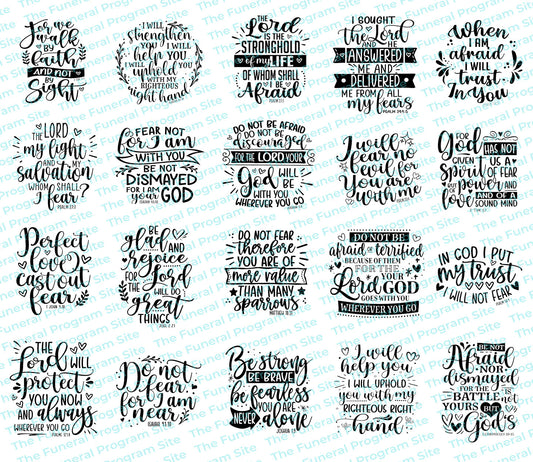 For we
walk
BY
faith
AND NOT
BY
Sight
I WILL
strengthen
YOU I WILL
help you
I WILL
uphold
WITH MY
RIGHTEOUS
right hand
THE
Lord
IS THE
STRONGHOLD
of my LIFE
OF WHOM SHALL
I BE
Afraid
PSALM 27:1
I SOUGHT
the Lord
AND HE
ANSWERED
ME AND
DELIVERED
ME FROM ALL
my fears
PSALM 34:4
When
I AM
afraid
I WILL
trust
In You
THE LORD
my light
AND MY
Salvation
WHOM SHALL
I fear?
PSALM 27:1
FEAR NOT
for I am
WITH YOU
BE NOT
DISMAYED
FOR I AM
your GOD
DO NOT BE AFRAID
DO NOT BE
discouraged
FOR THE LORD YOUR
God WILL
BE
WITH YOU
WHEREVER YOU GO
I will
fear no
evil for
You are
with me
FOR
God HAS NOT
GIVEN US A
Spirit OF
fear
BUT OF
power AND
FOR
love AND OF A
SOUND MIND
Perfect
love
cast out
fear
BE
Glad AND
rejoice
FOR THE
Lord
WILL DO
great
THINGS
JOEL 2:21
DO NOT FEAR
therefore
YOU ARE OF
more value
THAN MANY
sparrows
MATTHEW 10:31
DO NOT BE
afraid or terrified
BECAUSE OF THEM
FOR THE
Lord YOUR
GOD
GOES WITH YOU
WHEREVER YOU GO
IN GOD I PUT
my trust
I WILL NOT FEAR
THE
Lord WILL
protect
YOU NOW
AND always
WHEREVER YOU GO
PSALM 121:8
Do not
fear
for I am
near
ISAIAH 41:10
Be strong
BE BRAVE
be fearless
YOU ARE
NEVER alone
JOSHUA 1:9
I will
help you
I WILL UPHOLD
you with my
RIGHTEOUS RIGHT
hand
BE NOT
Afraid
NOR
dismayed
FOR THE
BATTLE IS
NOT
YOURS BUT
God's
The Funeral Program Site